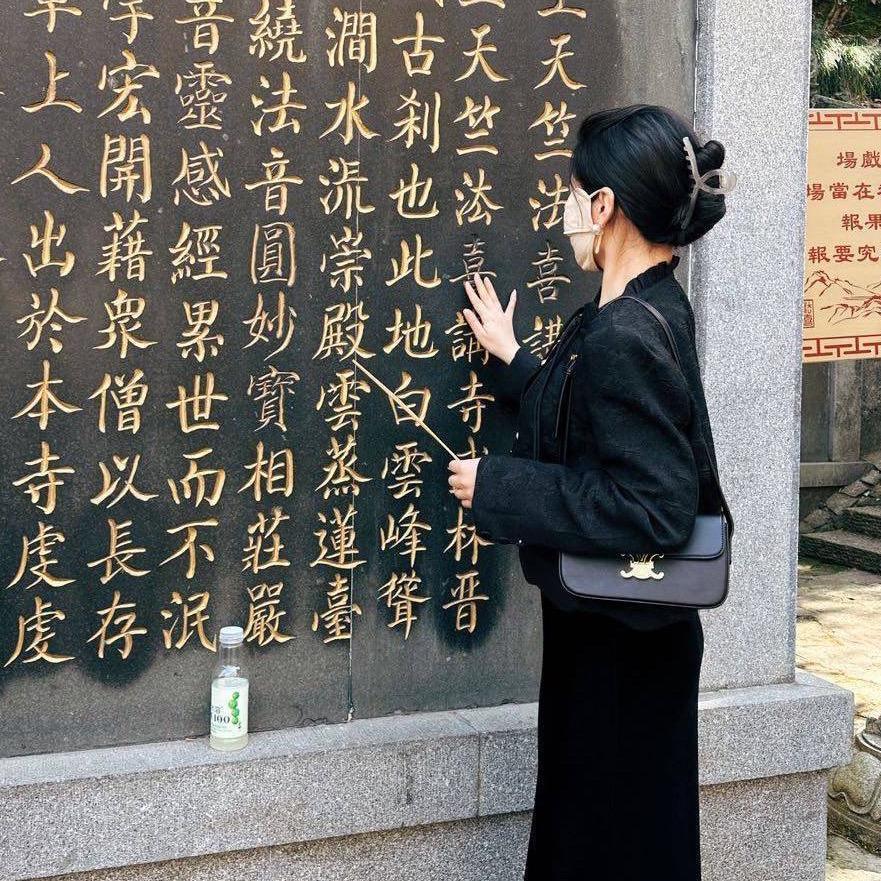 天竺法喜講
天竺法喜講寺 林晋
古刹也此地白雲峰聳
澗水流崇殿雲蒸蓮臺
繞法音圓妙寶相莊嚴
音靈感經累世而不泯
宏開藉眾僧以長存
上人出於本寺虔虔
戲場
在當場
果報
究要報
100